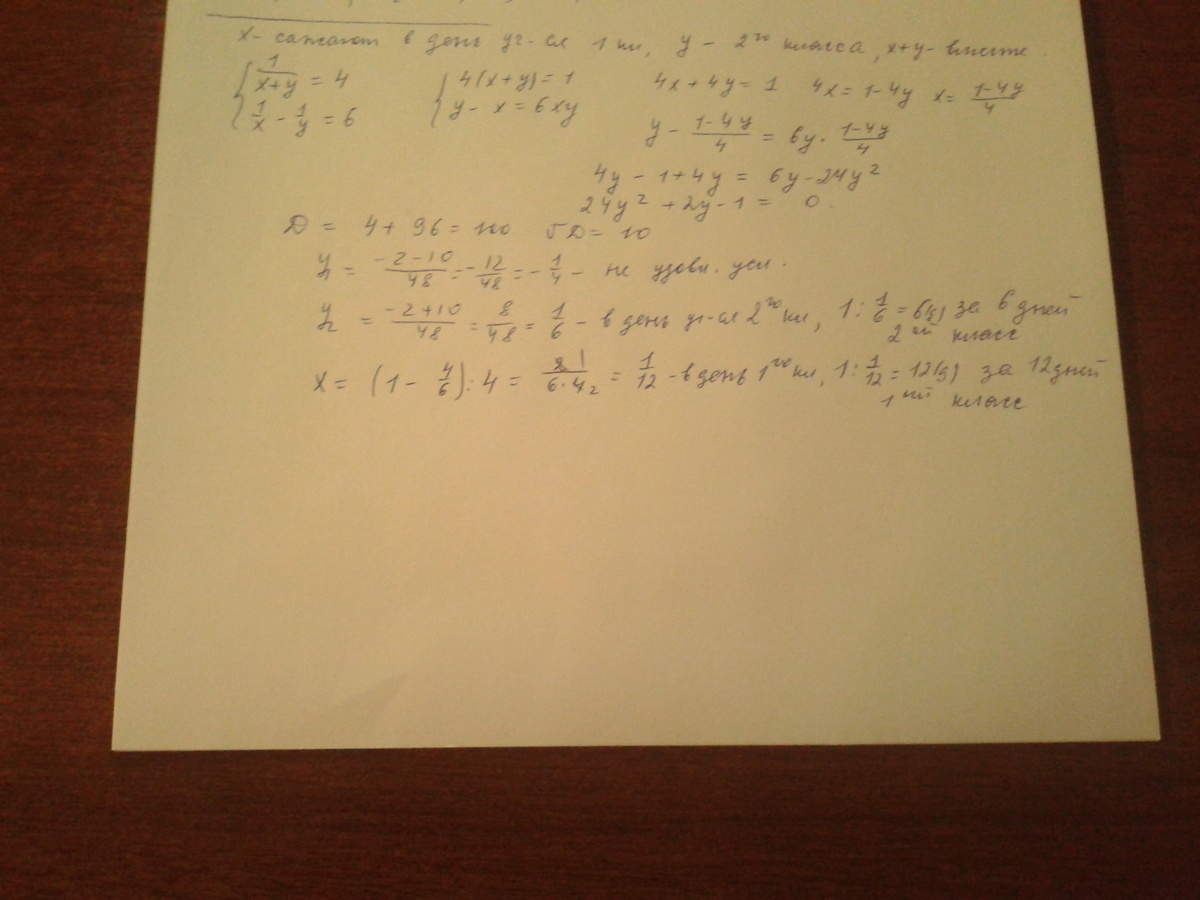 x - сажают в день уч-ся 1 кл, y - 2го класса, x+y - вместе.
{ 1/(x+y) = 4   { 4(x+y) = 1   4x + 4y = 1   4x = 1-4y   x = (1-4y)/4
1/x - 1/y = 6   y - x = 6xy
y - (1-4y)/4 = 6y · (1-4y)/4
4y - 1 + 4y = 6y - 24y²
24y² + 2y - 1 = 0.
D = 4 + 96 = 100   √D = 10
y₁ = (-2-10)/48 = -12/48 = -1/4 - не удовл. усл.
y₂ = (-2+10)/48 = 8/48 = 1/6 - в день уч-ся 2го кл, 1 : 1/6 = 6(д) за 6 дней
2ой класс
x = (1 - 4/6) : 4 = 2 1/(6·4 2) = 1/12 - в день 1го кл, 1 : 1/12 = 12(д) за 12 дней
1ый класс